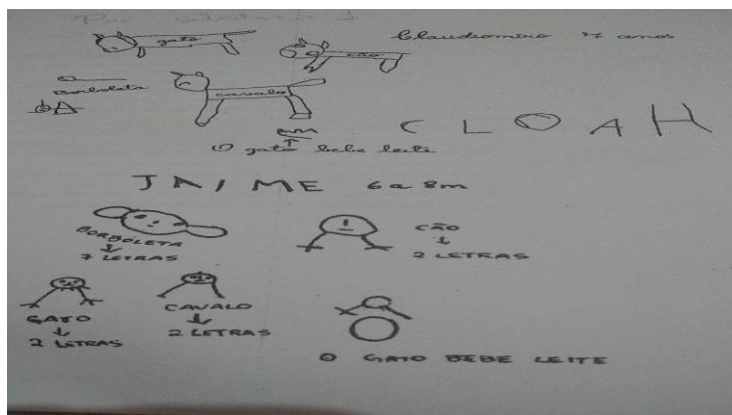 Claudiomiro 7 anos
gato
cão
Borboleta
cavalo
C L O A H
O gato bebe leite
JAIME 6a 8m
BORBOLETA
7 LETRAS
CÃO
2 LETRAS
GATO
2 LETRAS
CAVALO
2 LETRAS
O GATO BEBE LEITE